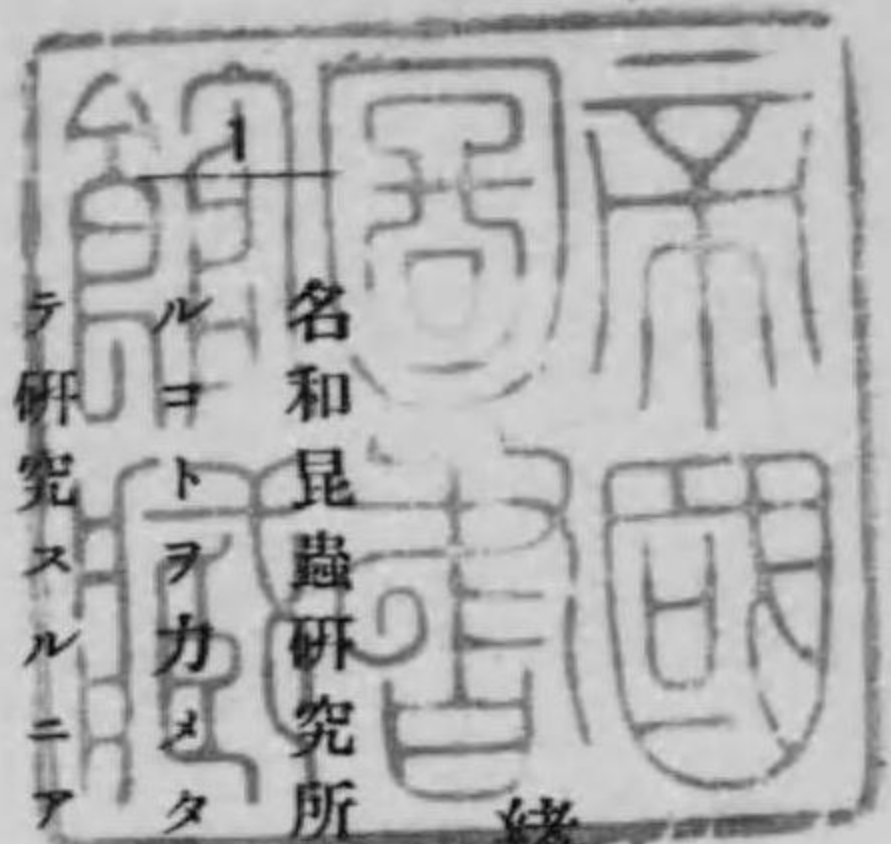 帝國
圖書
館藏
緒
名和昆蟲研究所
ルコトヲ力メタ
テ研究スルニア